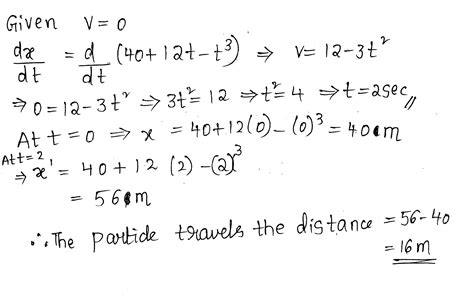 Given V = 0
dx/dt = d/dt (40+12t-t³) ⇒ V= 12-3t²
⇒ 0=12-3t² ⇒ 3t²= 12 ⇒ t²= 4 ⇒ t=2sec//
At t = 0 ⇒ x = 40+12(0)-(0)³ = 40m
At t=2 ⇒ x' = 40+12 (2)-(2)³
= 56m
∴ The particle travels the distance = 56-40
= 16m